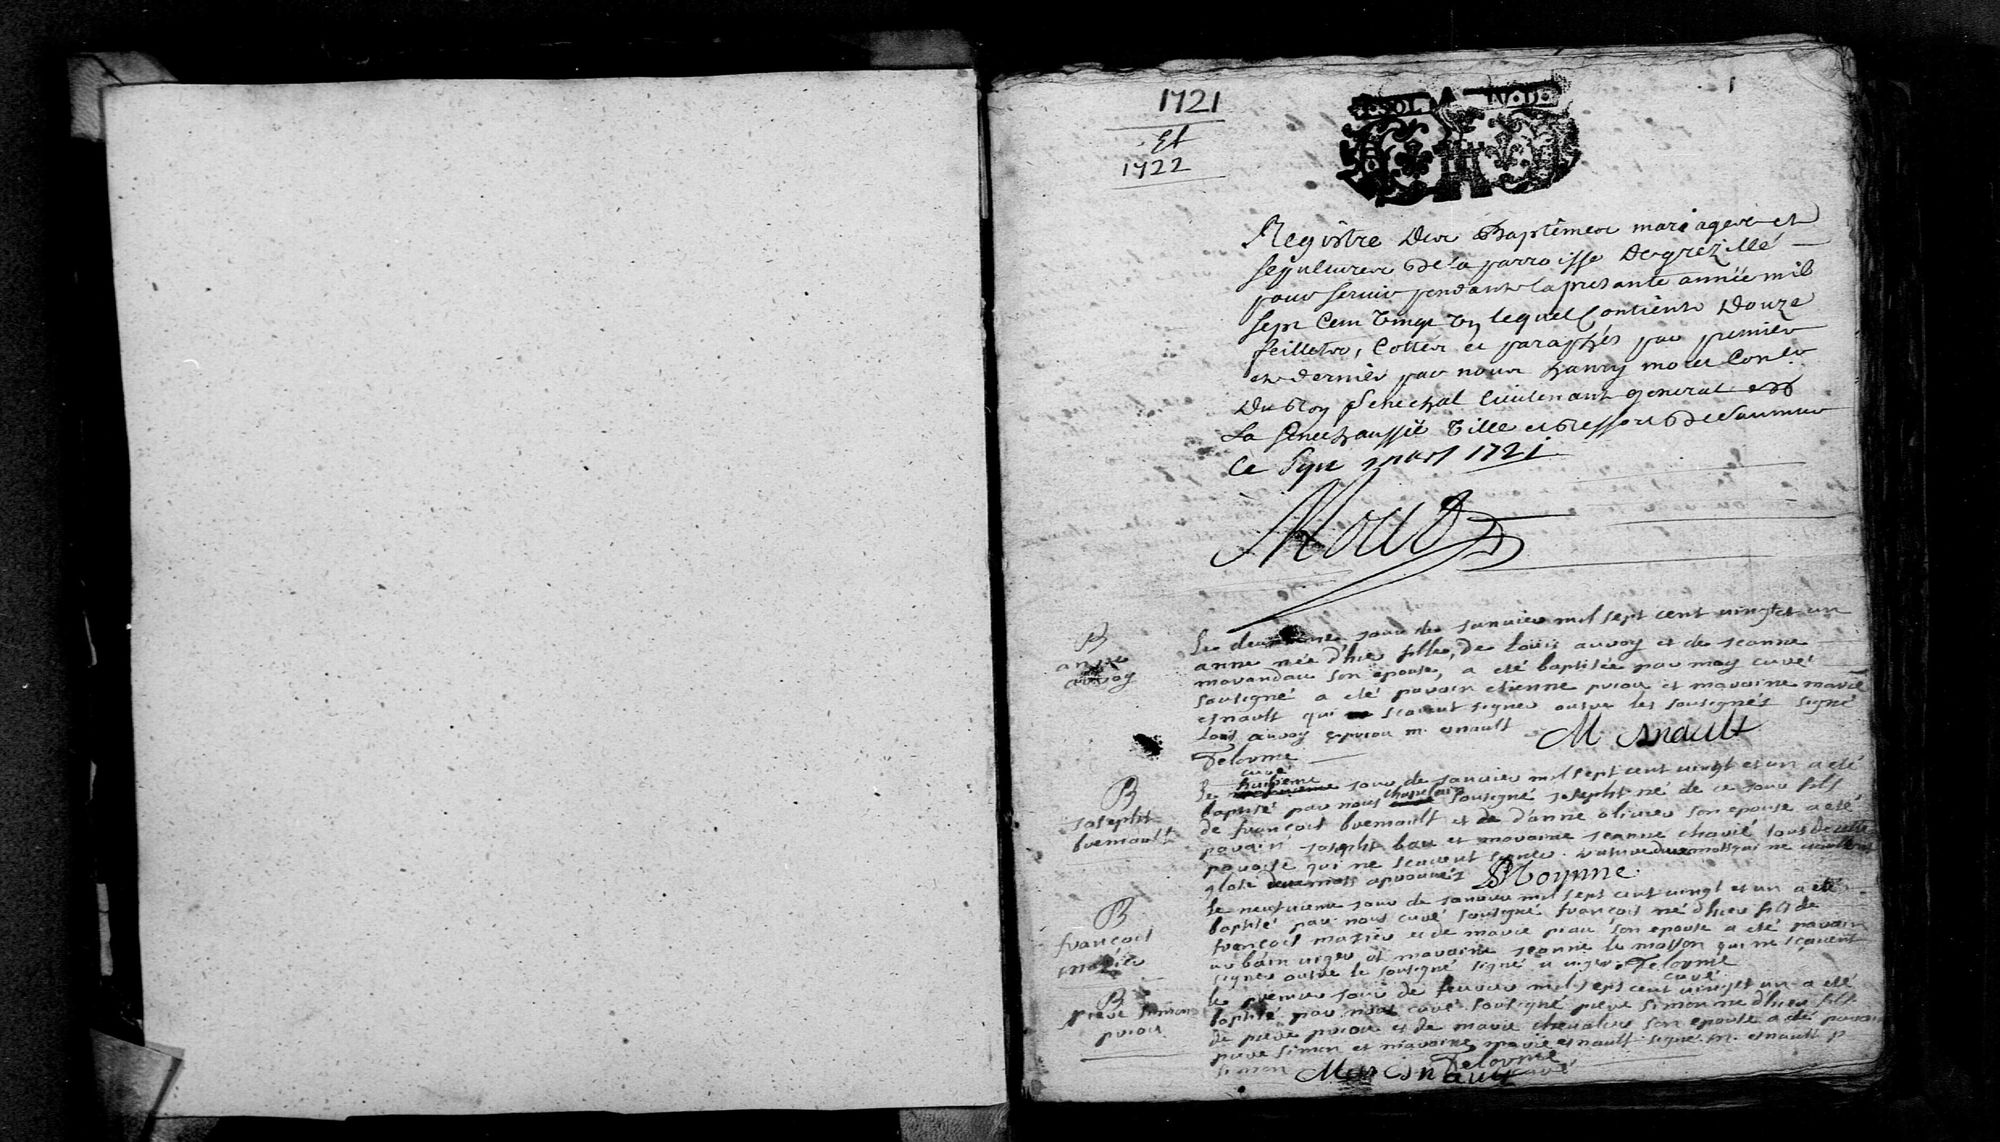 1721
Et
1722
1
Registre Des Baptêmes mariages et
sepultures de la parroisse De grezillé
pour servir pendant la presante année mil
sept Cent Vingt Un lequel Contient Douze
feillets, Cottés et paraphés par premier
et dernier par nous hanry Conser
Du Roy senechal lieutenant general en
La senechaussée Ville et Ressort de Saumur
Ce mars 1721
B
anne
auvoy
Le deuxieme jour de janvier mil sept cent vingt et un
anne née d'hier fille, de Louis auvoy et de jeanne
son epouse, a eté baptisée par moy curé
sousigné a eté parain etienne priou et maraine marie
esnault qui scavent signer outre les sousignés signé
Louis auvoy e priou m. esnault M Esnault
Delorme
curé
B
joseph
bremault
Le huitieme jour de janvier mil sept cent vingt et un a eté
baptisé par nous chapelain sousigné joseph né de ce jour fils
de françois bremault et de d'anne olivier son epouse a eté
parain joseph bau et maraine jeanne tous de cette
paroise qui ne scavent signer. rature deux mots qui ne
glose deux mots aprouvés Moynne
B
françois
mazier
Le neufvieme jour de janvier mil sept cent vingt et un a eté
baptisé par nous curé sousigné françois né d'hier fils de
françois mazier et de marie piau son epouse a eté parain
urbain uiger et maraine jeanne le masson qui ne scavent
signer outre le sousigné signé u uiger. Delorme
curé
B
pierre simon
priou
Le premier jour de fevrier mil sept cent vingt et un a eté
baptisé par nous curé sousigné pierre simon né d'hier fils
de pierre priou et de marie chevalier son epouse a eté parain
pierre simon et maraine marie esnault signé m. esnault p
simon Delorme
curé
Marie Esnault